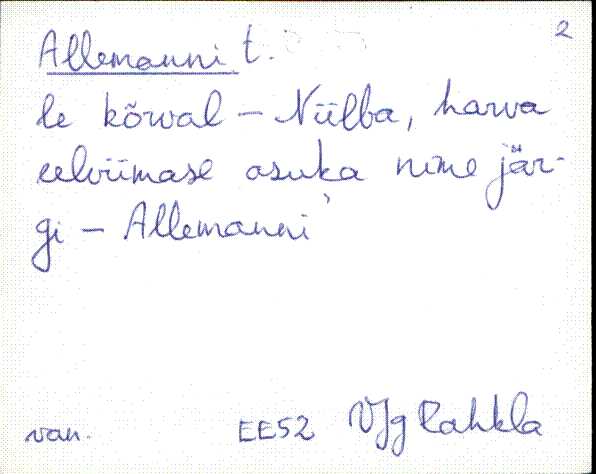 2
Allemanni t.
le kõrval – Niilba, harva
eelviimase asuka nime jär-
gi – Allemanni
van. EE52 VJg Rahkla